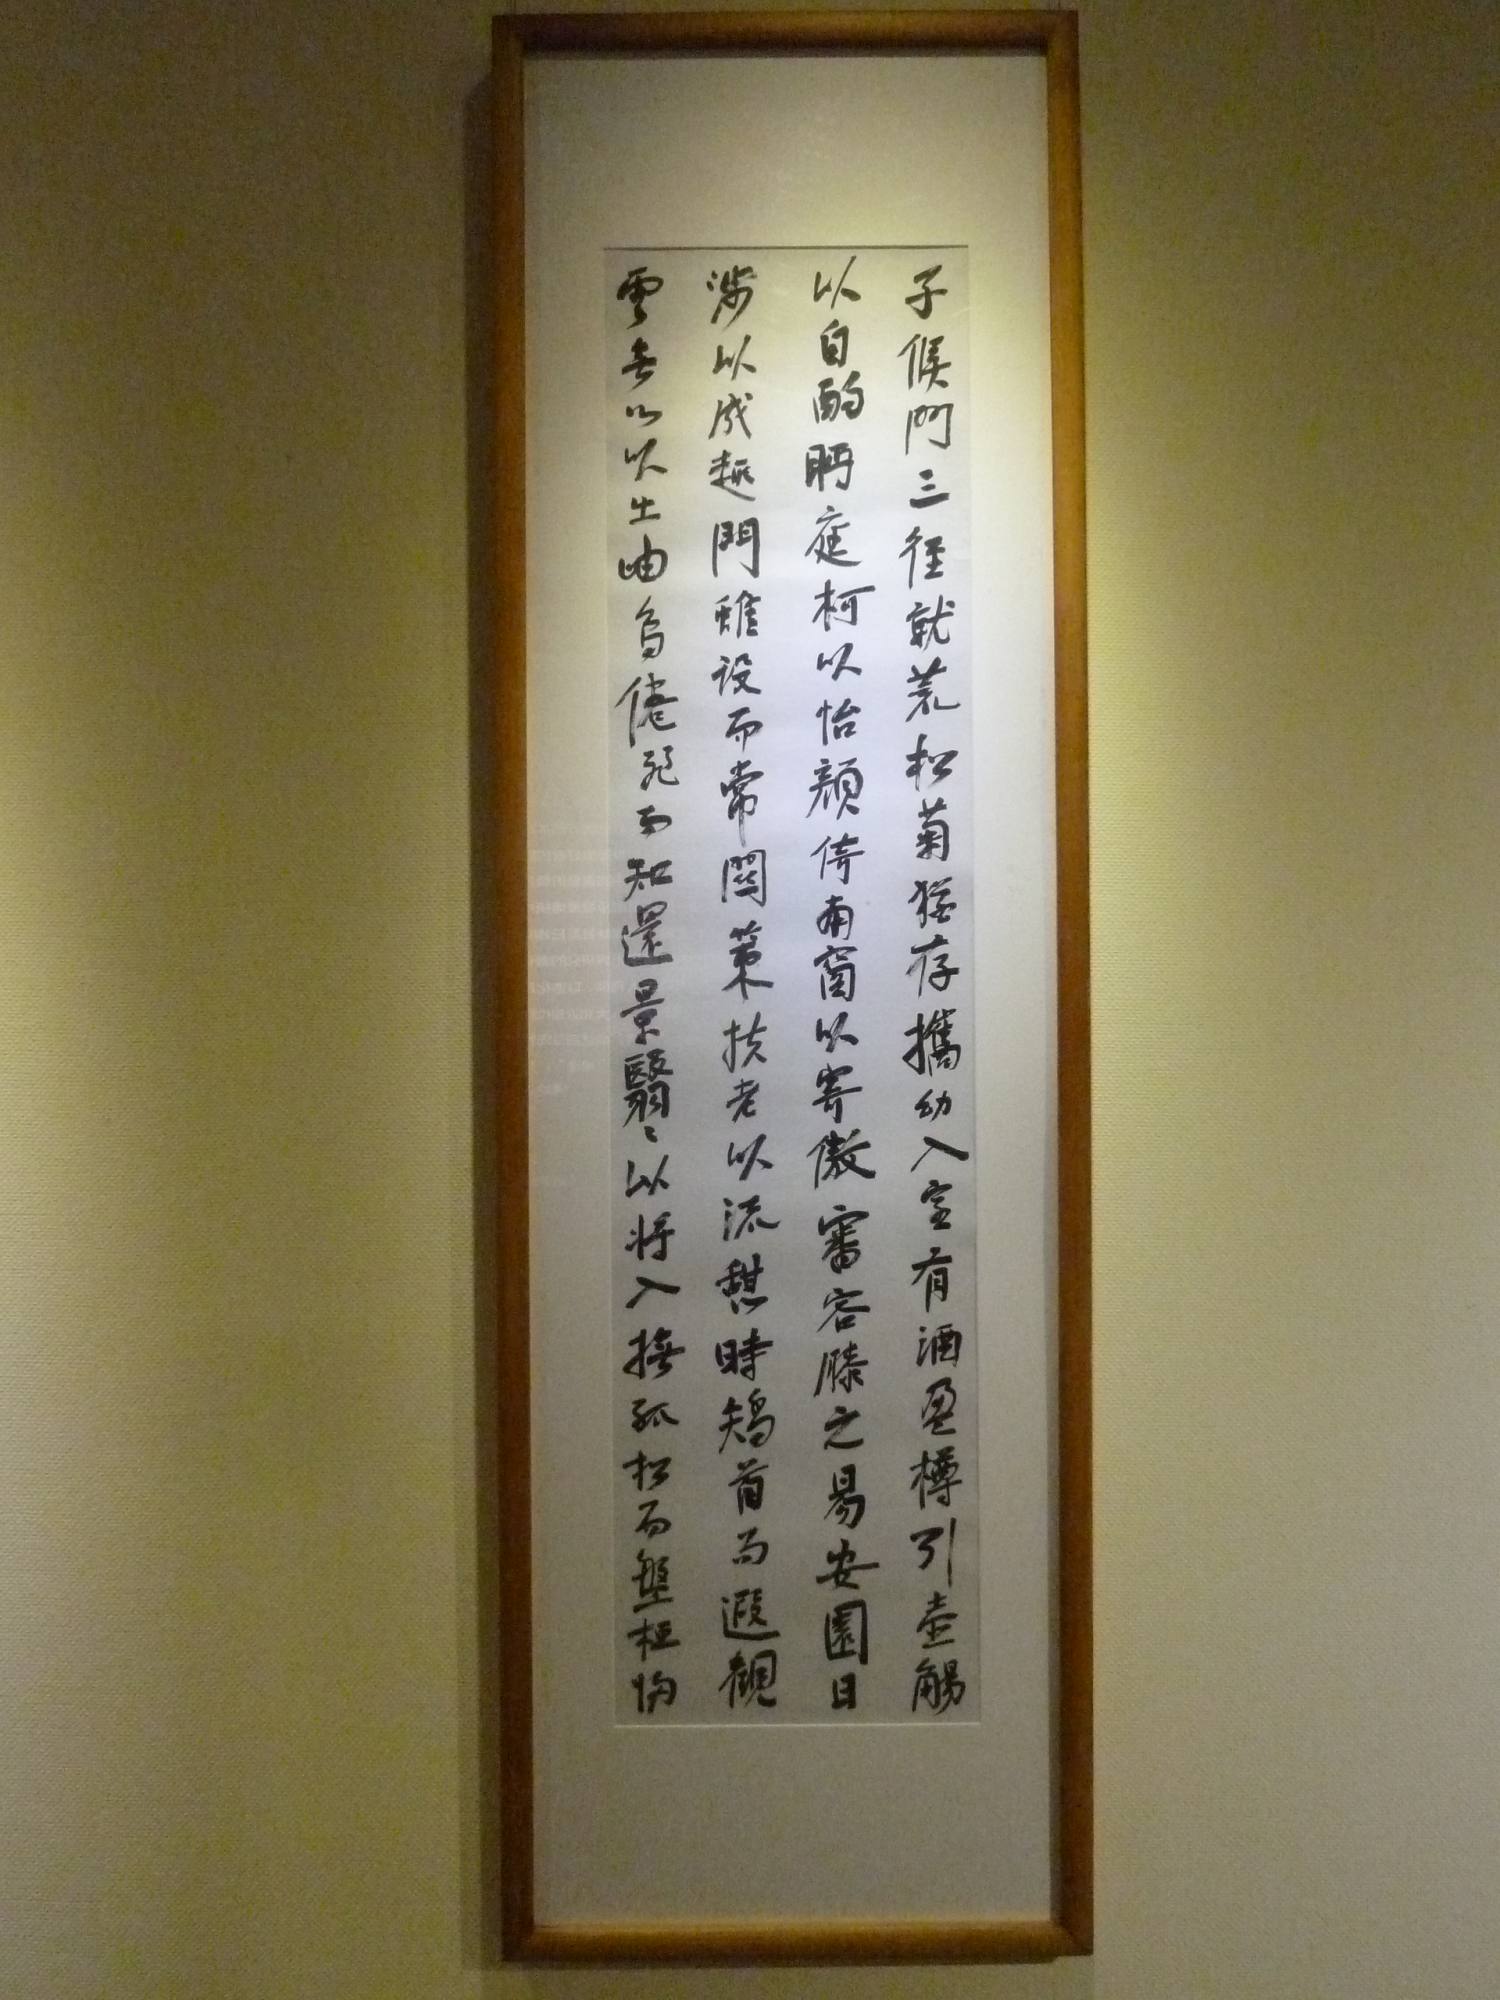 子候門三径就荒松菊猶存攜幼入室有酒盈樽引壺觴
以自酌眄庭柯以怡顏倚南窗以寄傲審容膝之易安園日
涉以成趣門雖设而常關策扶老以流憩時矯首而遐觀
雲無心以出岫鳥倦飛而知還景翳〻以將入撫孤松而盤桓悦